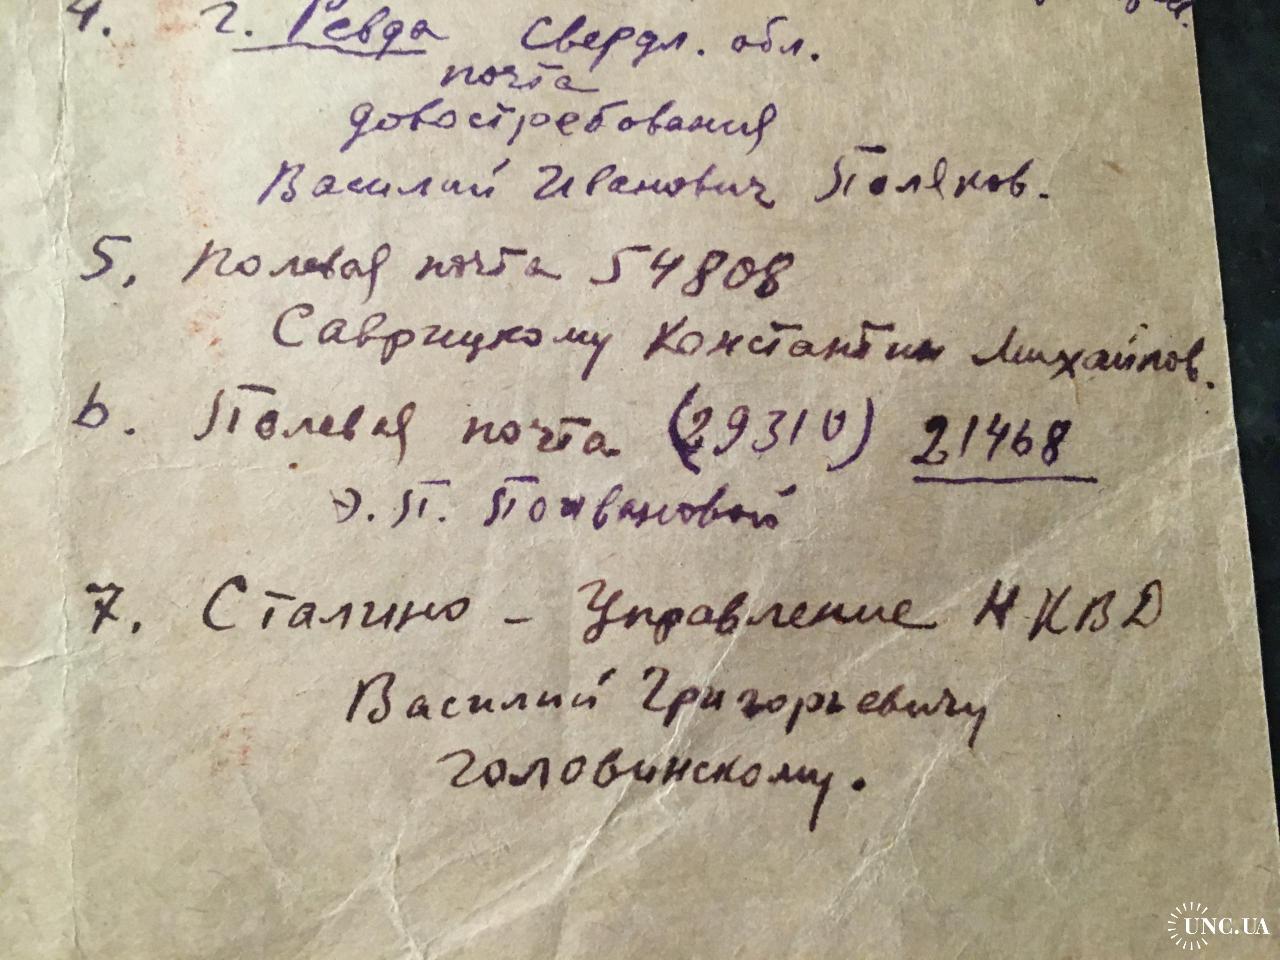 4. г. Ревда Свердл. обл.
почта
довостребования
Василий Иванович Поляков.
5. Полевая почта 54808
Саврицкому Константин Михайлов.
6. Полевая почта (29310) 21468
Э. П.
7. Сталино - Управление НКВД
Василий Григорьевичу
Головинскому.
UNC.UA